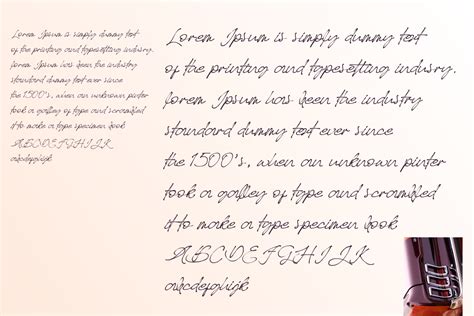 Lorem Ipsum is simply dummy text
of the printing and typesetting industry.
Lorem Ipsum has been the industry
standard dummy text ever since
the 1500's, when an unknown printer
took a galley of type and scrambled
it to make a type specimen book
ABCDEFGHIJK
abcdefghijk
Lorem Ipsum is simply dummy text
of the printing and typesetting industry.
Lorem Ipsum has been the industry
standard dummy text ever since
the 1500's, when an unknown pinter
took a galley of type and scrambled
it to make a type specimen book
ABCDEFGHIJK
abcdefghijk